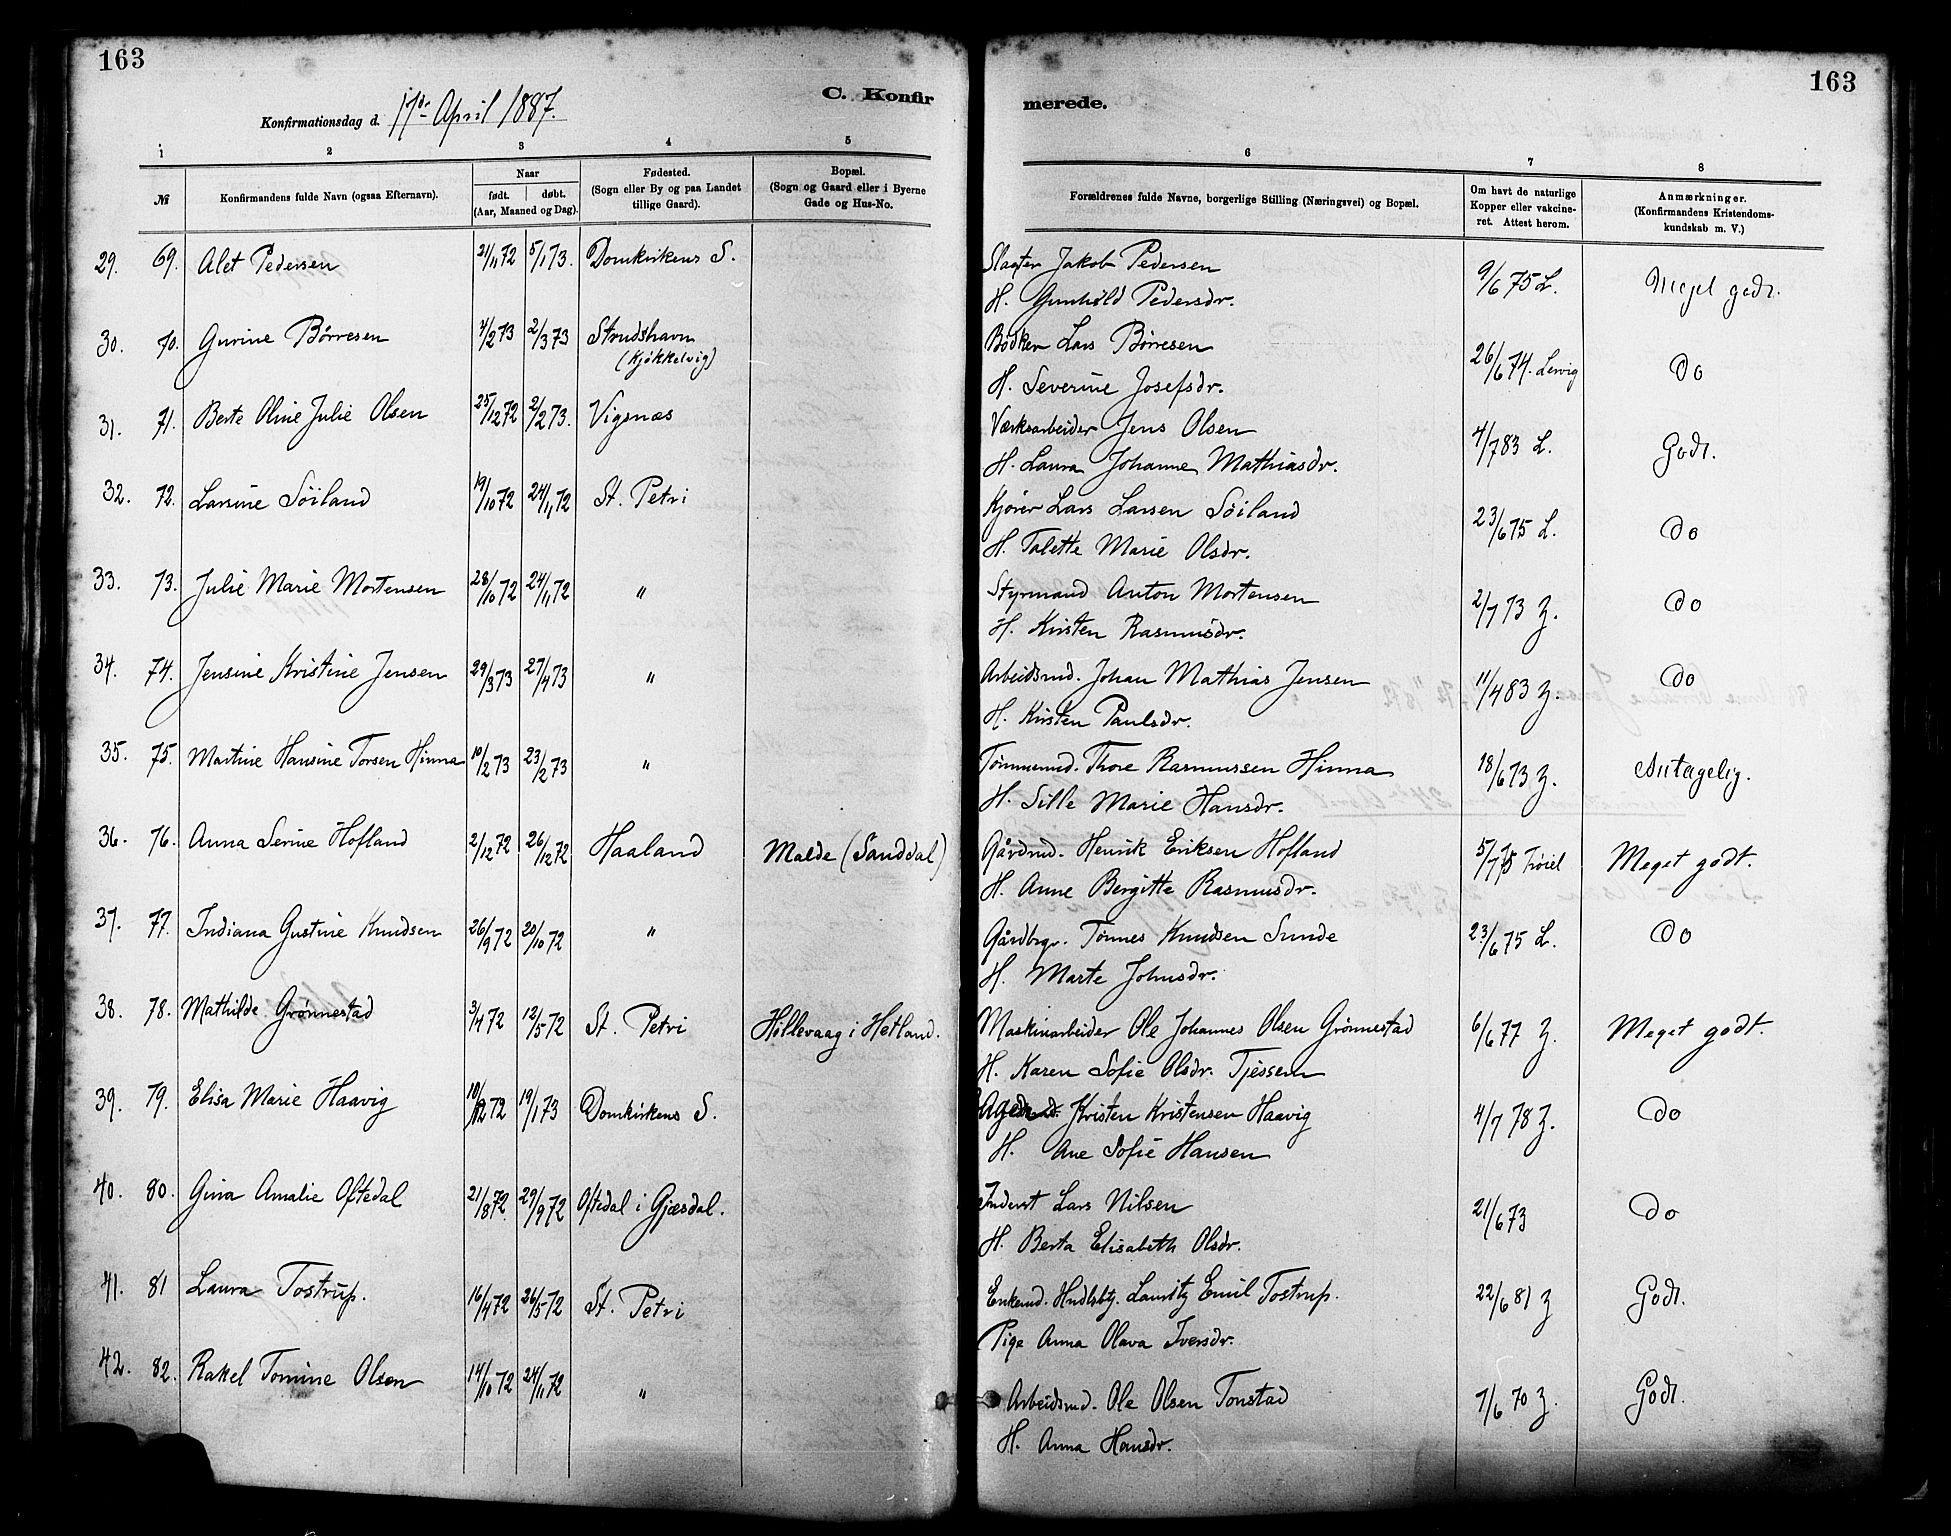 163
163
Konfirmationsdag d. 17de April 1887.
C. Konfir
merede.
1 2 3 4 5
6 7 8
№ Konfirmandens fulde Navn (ogsaa Efternavn). Naar født. døbt. (Aar, Maaned og Dag). Fødested. (Sogn eller By og paa Landet tillige Gaard). Bopæl. (Sogn og Gaard eller i Byerne Gade og Hus-No.
Forældrenes fulde Navne, borgerlige Stilling (Næringsvei) og Bopæl. Om havt de naturlige Kopper eller vakcineret. Attest herom. Anmærkninger. (Konfirmandens Kristendomskundskab m. V.)
29. 69. Alet Pedersen 21/11 72 5/1 73. Domkirkens S. Slagter Jakob Pedersen 9/6 75 L. Meget godt.
H. Gunhild Pedersdr.
30. 70. Gurine Börresen 4/2 73 2/3 73 Strudshavn Bödker Lars Börresen 26/6 74. Lervig Do
(Kjøkkelvig) H. Severine Josefsdr.
31. 71. Berte Oline Julie Olsen 25/12 72 2/2 73. Vigsnæs Værksarbeider Jens Olsen 4/7 83 L. Godt.
H. Laura Johanne Mathiasdr.
32. 72. Larsine Söiland 19/10 72 24/11 72 St. Petri Kjører Lars Larsen Söiland 23/6 75 L. Do
H. Talette Marie Olsdr.
33. 73. Julie Marie Mortensen 28/10 72 24/11 72 " Styrmand Anton Mortensen 2/7 73 Z. Do
H. Kirsten Rasmusdr.
34. 74. Jensine Kristine Jensen 29/3 73 27/4 73 " Arbeidsmd. Johan Mathias Jensen 11/4 83 Z. Do
H. Kirsten Paulsdr.
35. 75. Martine Hansine Torsen Hinna 10/2 73 23/2 73 " Tömmermd. Thore Rasmussen Hinna 18/6 73 Z. Antagelig.
H. Sille Marie Hansdr.
36. 76. Anna Serine Hofland 2/12 72 26/12 72 Haaland Malde (Sanddal) Gårdmd. Henrik Eriksen Hofland 5/7 75 Meget godt.
H. Anne Bergitte Rasmusdr.
37. 77. Indiana Gustine Knudsen 26/9 72 20/10 72 " Gårdbrgr. Tönnes Knudsen Sunde 23/6 75 L. Do
H. Marte Johnsdr.
38. 78. Mathilde Grönnestad 3/4 72 12/5 72 St. Petri Hillevaag i Hetland. Maskinarbeider Ole Johannes Olsen Grönnestad 6/6 77 Z. Meget godt.
H. Karen Sofie Olsdr. Tjessem
39. 79. Elisa Marie Haavig 10/12 72 19/1 73 Domkirkens S. Kristen Kristensen Haavig 4/7 78 Z. Do
H. Ane Sofie Hansen
40. 80. Gina Amalie Oftedal 21/8 72. 29/9 72 Oftedal i Gjæsdal. Inderst Lars Nilsen 21/6 73 Do
H. Berta Elisabeth Olsdr.
41. 81 Laura Tostrup. 16/4 72 26/5 72 St. Petri Enkemd. Hndlsbtj. Lauritz Emil Tostrup. 22/6 81 Z Godt.
Pige Anna Olava Iversdr.
42. 82. Rakel Tomine Olsen 14/10 72 24/11 72 " Arbeidsmd. Ole Olsen Tonstad 7/6 70 Z. Godt.
H. Anna Hansdr.